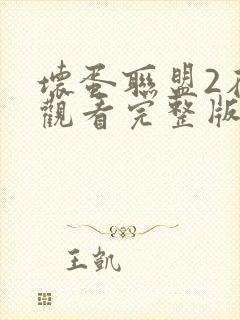 壞蛋聯盟2
觀看完整版
王凱